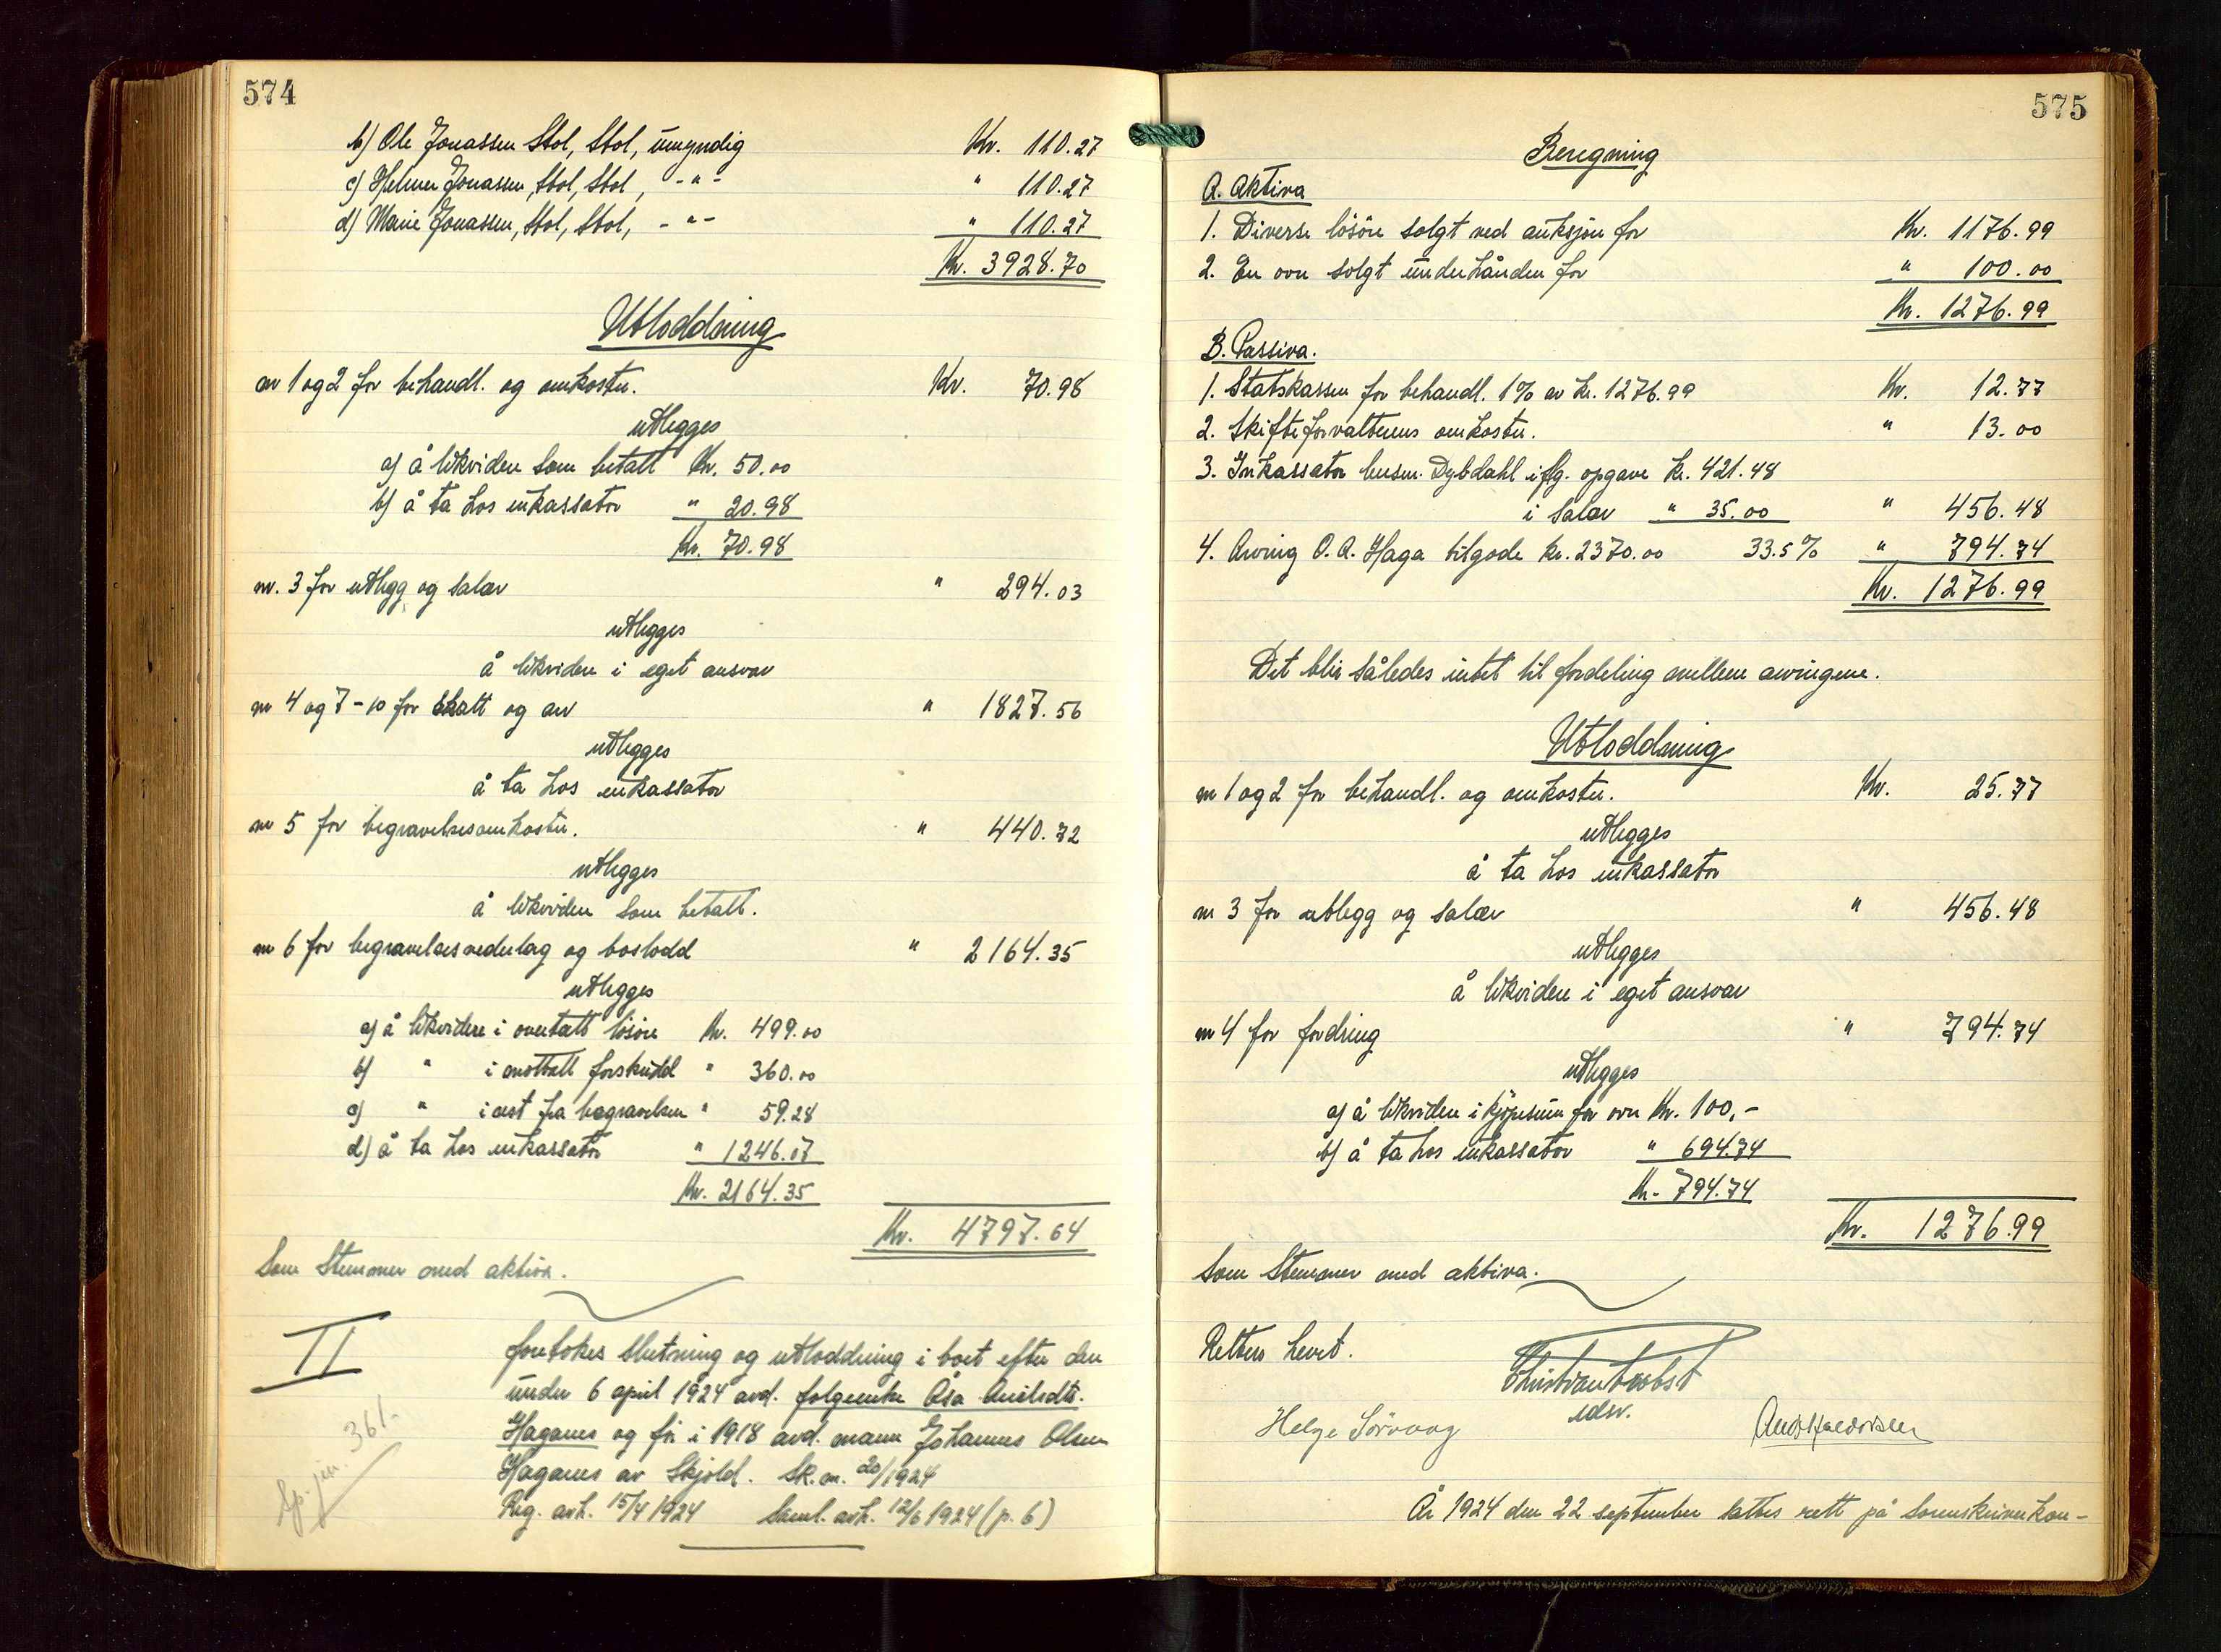 574
b) Ole Jonassen Stol, Stol, umyndig Kr. 110.27
c) Helmer Jonassen, Stol, Stol, -"- " 110.27
d) Marie Jonassen, Stol, Stol, -"- " 110.27
Kr. 3928.70
Utloddning
nr 1 og 2 for behandl. og omkostn. Kr. 70.98
utlegges
a) å likvidere som betalt Kr. 50.00
b) å ta hos inkassator " 20.98
Kr. 70.98
nr. 3 for utlegg og salær " 294.03
utlegges
å likvidere i eget ansvar
nr 4 og 7-10 for skatt og arv " 1827.56
utlegges
å ta hos inkassator
nr 5 for begravelsesomkostn. " 440.72
utlegges
å likvidere som betalt.
nr 6 for begravelsesvederlag og boslodd " 2164.35
utlegges
a) å likvidere i overtatt lösöre Kr. 499.00
b) " i mottatt forskudd " 360.00
c) " i rest fra begravelsen " 59.28
d) å ta hos inkassator " 1246.07
Kr. 2164.35
Kr. 4797.64
Som stemmer med aktiva.
II
foretokes slutning og utloddning i boet efter den
under 6 april 1924 avd. folgeenke Åsa
Haganes og för i 1918 avd. mann Johannes Olsen
Haganes av Skjold. Sk.m. 20/1924
Reg. avh. 15/4 1924 Saml. avh. 12/6 1924 (p. 6)
361.
575
Beregning
A. Aktiva
1. Diverse lösöre solgt ved auksjon for Kr. 1176.99
2. En ovn solgt underhånden for " 100.00
Kr. 1276.99
B. Passiva.
1. Statskassen for behandl. 1% av kr. 1276.99 Kr. 12.77
2. Skifteforvalterens omkostn. " 13.00
3. Inkassator lensm. Dybdahl iflg. opgave kr. 421.48
i salær " 35.00 " 456.48
4. Arving O. A. Haga tilgode kr. 2370.00 33.5% " 794.74
Kr. 1276.99
Det blir således intet til fordeling mellem arvingene.
Utloddning
nr 1 og 2 for behandl. og omkostn. Kr. 25.77
utlegges
å ta hos inkassator
nr 3 for utlegg og salær " 456.48
utlegges
å likvidere i eget ansvar
nr 4 for fordring " 794.74
utlegges
a) å likvidere i kjöpesum for ovn Kr. 100,-
b) å ta hos inkassator " 694.74
Kr. 794.74
Kr. 1276.99
Som stemmer med aktiva.
Retten hevet.
Christian Lobst
edsv.
Helge Sörvaag
År 1924 den 22 september sattes rett på Sorenskriverkon-